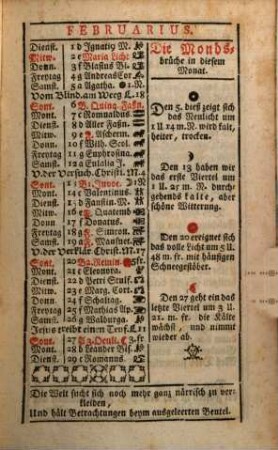 FEBRUARIUS.
Dienst. 1 d Ignatig M.
Mitw. 2 e Maria Licht
Donn. 3 f Blasius Bi.
Freytag 4 g Andreas Cor.
Samst. 5 a Agatha.
Vom Blind. am Weeg L. 18
Sont. 6 B. Quinq. Faßn.
Mont. 7 c Romualdus
Dienst. 8 d Aller Faßn.
Mitw. 9 e F. Ascherm.
Donn. 10 f Wilh. Scol.
Freytag 11 g Euphrosina.
Samst. 12 a Eulalia J.
V. der Versuch. Christi. M. 4
Sont. 13 B 1. Invoc.
Mont. 14 c Valentinus.
Dienst. 15 d Faustin. M.
Mitw. 16 e F. Quatemb
Donn. 17 f Donatus.
Freytag 18 g F. Simeon.
Samst. 19 a F. Mansuet.
V. der Verklär. Christi. M. 17
Sont. 20 B 2. Remin.
Mont. 21 c Eleonora.
Dienst. 22 d Petri Stulf.
Mitw. 23 e Marg. Cort.
Donn. 24 f Schaltag.
Freytag 25 f Mathias Ap.
Samst. 26 g Walburga.
Jesus treibt einen Teuf. L. 11
Sont. 27 A 3. Oculi
Mont. 28 b Leander Bis.
Dienst. 29 c Romanus.
Die Monds-
brüche in diesem
Monat.
Den 5. dieß zeigt sich
das Neulicht um
1 U. 14 m. N. wird kalt,
heiter, trocken.
Den 13 haben wir
das erste Viertel um
1 U. 21 m. N. durch-
gehends kalte, aber
schöne Witterung.
Den 20 ereignet sich
das volle Licht um 3 U.
48 m. fr. mit häufigen
Schneegestöber.
Den 27 geht ein das
letzte Viertel um 3 U.
21. m. fr. die Kälte
wächst, und nimmt
wieder ab.
Die Welt sucht sich noch mehr ganz närrisch zu ver-
kleiden,
Und hält Betrachtungen beym ausgeleerten Beutel.